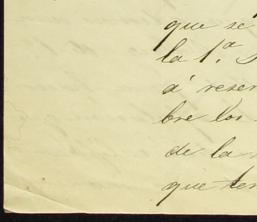 que se
la 1.ª
á reser
bre los
de la
que ten